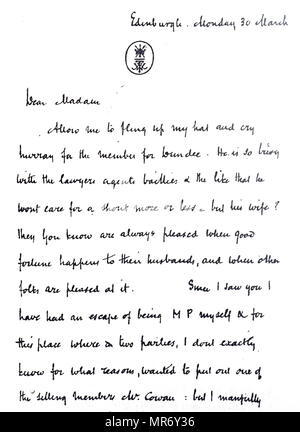 Edinburgh. Monday 30 March
Dear Madam
Allow me to fling up my hat and cry
hurray for the member for Dundee. He is so busy
with the lawyers agents baillies & the like that he
wont care for a shout more or less - but his wife?
They you know are always pleased when good
fortune happens to their husbands, and when other
folks are pleased at it. Since I saw you I
have had an escape of being M P myself & for
this place where two parties, I dont exactly
know for what reasons, wanted to put out one of
the sitting members Mr. Cowan : but I manfully
alamy
Image ID: MR67Y36
www.alamy.com